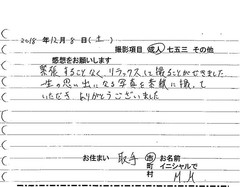 2018年12月8日(土)
撮影項目 成人 七五三 その他
感想をお願いします
緊張することなく、リラックスして撮ることができました
一生の思い出になる写真を素敵に撮って
いただき、ありがとうございました
お住まい 取手 市 町 村 お名前 イニシャルで M.M